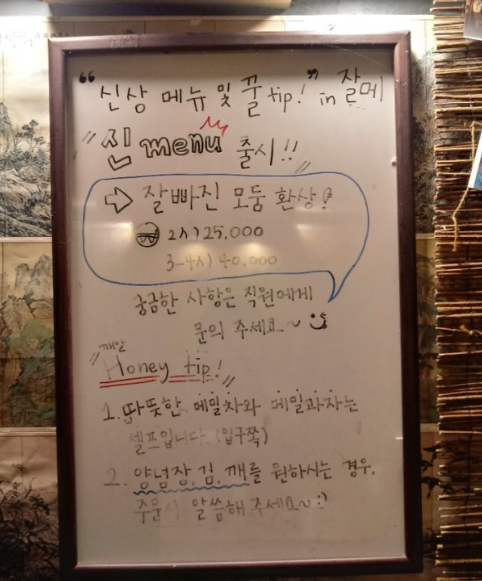 "신상 메뉴 및 꿀 tip!" in 잘메
"신 menu 출시!!"
⇨ 잘빠진 모둠 환상!
2人) 25,000
3-4人) 40,000
궁금한 사항은 직원에게
문의 주세요~
깨알
"Honey tip!"
1. 따뜻한 메밀차와 메밀과자는
셀프입니다. (입구쪽)
2. 양념장, 김, 깨를 원하시는 경우,
주문시 말씀해 주세요~ :)